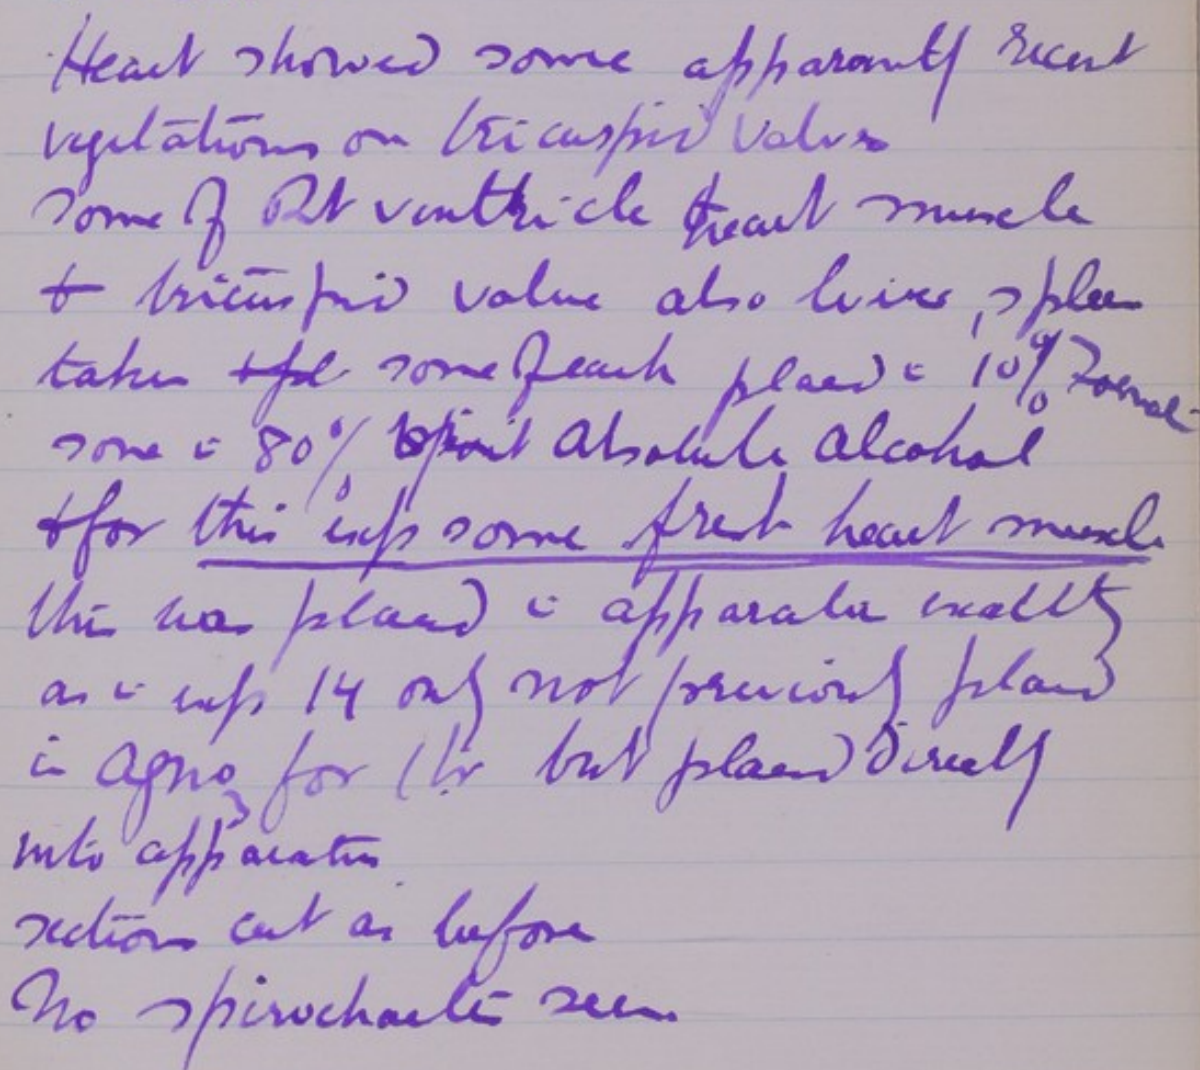 Heart showed some apparently recent
vegetations on tricuspid valves
some of Rt ventricle heart muscle
+ tricuspid valve also liver, spleen
taken some of each placed c̄ 10% Formal
some c̄ 80% spirit Absolute Alcohol
+ for this exp some fresh heart muscle
this was placed c̄ apparatus exactly
as c̄ exp 14 only not previously placed
in AgNO3 for 1 hr but placed directly
into apparatus
sections cut as before
No spirochaetes seen